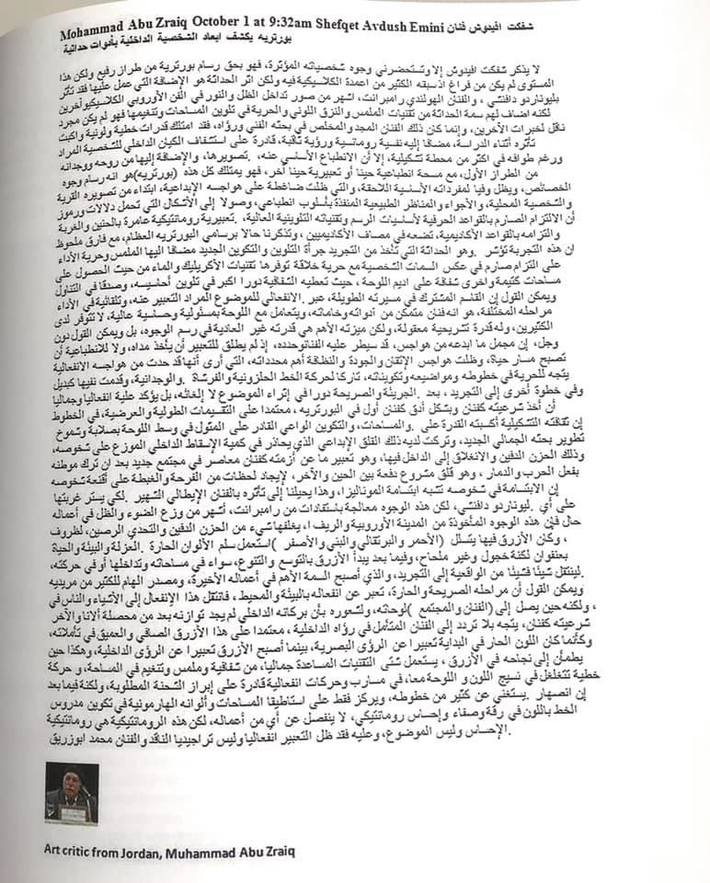 Mohammad Abu Zraiq October 1 at 9:32am Shefqet Avdush Emini شفكت افيدوش فنان
بورتريه يكشف ابعاد الشخصية الداخلية بأدوات حداثية
لا يذكر شفكت افيدوش إلا وتستحضرني وجوه شخصياته المؤثرة، فهو بحق رسام بورتريه من طراز رفيع ولكن هذا
المستوى لم يكن من فراغ اذ سبقه الكثير من اعمدة الكلاسيكية فيه ولكن اثر الحداثة هو الإضافة التي عمل عليها فقد تأثر
بليوناردو دافنشي ، والفنان الهولندي رامبرانت، اشهر من صور تداخل الظل والنور في الفن الأوروبي الكلاسيكي وآخرين
لكنه اضاف لهم سمة الحداثة من تقنيات الملمس والنزق اللوني والحرية في تلوين المساحات وتنغيمها فهو لم يكن مجرد
ناقل لخبرات الآخرين، وإنما كان ذلك الفنان المجد والمخلص في بحثه الفني ورؤاه، فقد امتلك قدرات خطية ولونية واكبت
تأثره أثناء الدراسة، مضافا إليه نفسية رومانسية ورؤية ثاقبة، قادرة على استشفاف الكيان الداخلي للشخصية المراد
ورغم طوافه في اكثر من محطة تشكيلية، إلا أن الانطباع الأسي عنه، .تصويرها، والإضافة إليها من روحه ووجدانه
من الطراز الأول، مع مسحة انطباعية حينا أو تعبيرية حينا آخر، فهو يمتلك كل هذه (بورتريه) هو انه رسام وجوه
الخصائص، ويظل وفيا لمفرداته الأساسية اللاحقة، والتي ظلت ضاغطة على هواجسه الإبداعية، ابتداء من تصويره القرية
والشخصية المحلية، والأجواء والمناظر الطبيعية المنفذة بأسلوب انطباعي، وصولا إلى الأشكال التي تحمل دلالات ورموز
أن الالتزام الصارم بالقواعد الحرفية لأساسيات الرسم وتقنياته التلوينية العالية، .تعبيرية رومانتيكية عامرة بالحنين والغربة
والتزامه بالقواعد الأكاديمية، تضعه في مصاف الأكاديميين ، وتذكرنا حالا برسامي البورتريه العظام، مع فارق ملحوظ
ان هذه التجربة تؤشر .وهو الحداثة التي تتخذ من التجريد جرأة التلوين والتكوين الجديد مضافا إليها الملمس وحرية الأداء
على التزام صارم في عكس السمات الشخصية مع حرية خلاقة توفرها تقنيات الأكريليك والماء من حيث الحصول على
مساحات كتيمة واخرى شفافة على اديم اللوحة ، حيث تعطيه الشفافية دورا اكبر في تلوين أحاسيسه، وصدقا في التناول
ويمكن القول إن القاسم المشترك في مسيرته الطويلة، عبر .الانفعالي للموضوع المراد التعبير عنه، وتلقائية في الأداء
مراحله المختلفة، هو انه فنان متمكن من أدواته وخاماته، ويتعامل مع اللوحة بمسئولية وحساسية عالية، لا تتوفر لدى
الكثيرين، وله قدرة تشريحية معقولة، ولكن ميزته الأهم هي قدرته غير العادية في رسم الوجوه، بل ويمكن القول دون
وجل، إن مجمل ما ابدعه من هواجس، قد سيطر عليه الفنان وحدده، إذ لم يطلق للتعبير أن يأخذ مداه، ولا للانطباعية أن
تصبح مسار حياة، وظلت هواجس الإتقان والجودة والنظافة أهم محدداته، التي أرى أنها قد حدت من هواجسه الانفعالية
يتجه للحرية في خطوطه ومواضيعه وتكويناته، تاركا لحركة الخط الحلزونية والفرشاة .والوجدانية، وقدمت نفسها كبديل
وفي خطوة أخرى إلى التجريد، بعد .الجريئة والصريحة دورا في إثراء الموضوع لا إلغائه، بل يؤكد علية انفعاليا وجماليا
أن أخذ شرعيته كفنان وبشكل ادق كفنان أول في البورتريه ، معتمدا على التقسيمات الطولية والعرضية، في الخطوط
إن ثقافته التشكيلية أكسبته القدرة على .والمساحات، والتكوين الواعي القادر على المثول في وسط اللوحة بصلابة وشموخ
تطوير بحثه الجمالي الجديد، وتركت لديه ذلك القلق الإبداعي الذي يحاذر في كمية الإسقاط الداخلي الموزع على شخوصه،
وذلك الحزن الدفين والانغلاق إلى الداخل فيها، وهو تعبير ما عن أزمته كفنان معاصر في مجتمع جديد بعد ان ترك موطنه
بفعل الحرب والدمار ، وهو قلق مشروع دفعة بين الحين والآخر، لإيجاد لحظات من الفرحة والغبطة على أقنعة شخوصه
إن الابتسامة في شخوصه تشبه ابتسامة الموناليزا، وهذا يحيلنا إلى تأثره بالفنان الإيطالي الشهير .لكي يستر غربتها
على أي .ليوناردو دافنشي، لكن هذه الوجوه معالجة باستفادات من رامبرانت، أشهر من وزع الضوء والظل في أعماله
حال فإن هذه الوجوه المأخوذة من المدينة الأوروبية والريف ا، يغلفها شيء من الحزن الدفين والتحدي الرصين، لظروف
، وكان الأزرق فيها يتسلل (الأحمر والبرتقالي والبني والأصفر )استعمل سلم الألوان الحارة .العزلة والبيئة والحياة
بعنفوان لكنة خجول وغير ملحاح، وفيما بعد يبدأ الأزرق بالتوسع والتنوع، سواء في مساحاته وتداخلها أو في حركته،
.لينتقل شيئا فشيئا من الواقعية إلى التجريد، والذي أصبح السمة الأهم في أعماله الأخيرة، ومصدر الهام للكثير من مريديه
ويمكن القول أن مراحله الصريحة والحارة، تعبر عن انفعاله بالبيئة والمحيط، فانتقل هذا الإنفعال إلى الأشياء والناس في
، ولكنه حين يصل إلى (الفنان والمجتمع )لوحاته، ولشعوره بأن بركاته الداخلي لم يجد توازنه بعد من محصلة ألانا والآخر
شرعيته كفنان، يتجه بلا تردد إلى الفنان المتأمل في رؤاه الداخلية ، معتمدا على هذا الأزرق الصافي والعميق في تأملاته،
وكأنما كان اللون الحار في البداية تعبيرا عن الرؤى البصرية، بينما أصبح الأزرق تعبيرا عن الرؤى الداخلية، وهكذا حين
يطمأن إلى نجاحه في الأزرق ، يستعمل شتى التقنيات المساعدة جماليا، من شفافية وملمس وتنغيم في المساحة، و حركة
خطية تتغلغل في نسيج اللون و اللوحة معا، في مسارب وحركات انفعالية قادرة على إبراز الشحنة المطلوبة، ولكنة فيما بعد
إن انصهار .يستغني عن كثير من خطوطه، ويركز فقط على استاطيقا المساحات وألوانه الهارمونية في تكوين مدروس
الخط باللون في رقة وصفاء وإحساس رومانتيكي، لا ينفصل عن أي من أعماله، لكن هذه الرومانتيكية هي رومانتيكية
.الإحساس وليس الموضوع، وعليه فقد ظل التعبير انفعاليا وليس تراجيديا الناقد والفنان محمد ابوزريق
Art critic from Jordan, Muhammad Abu Zraiq